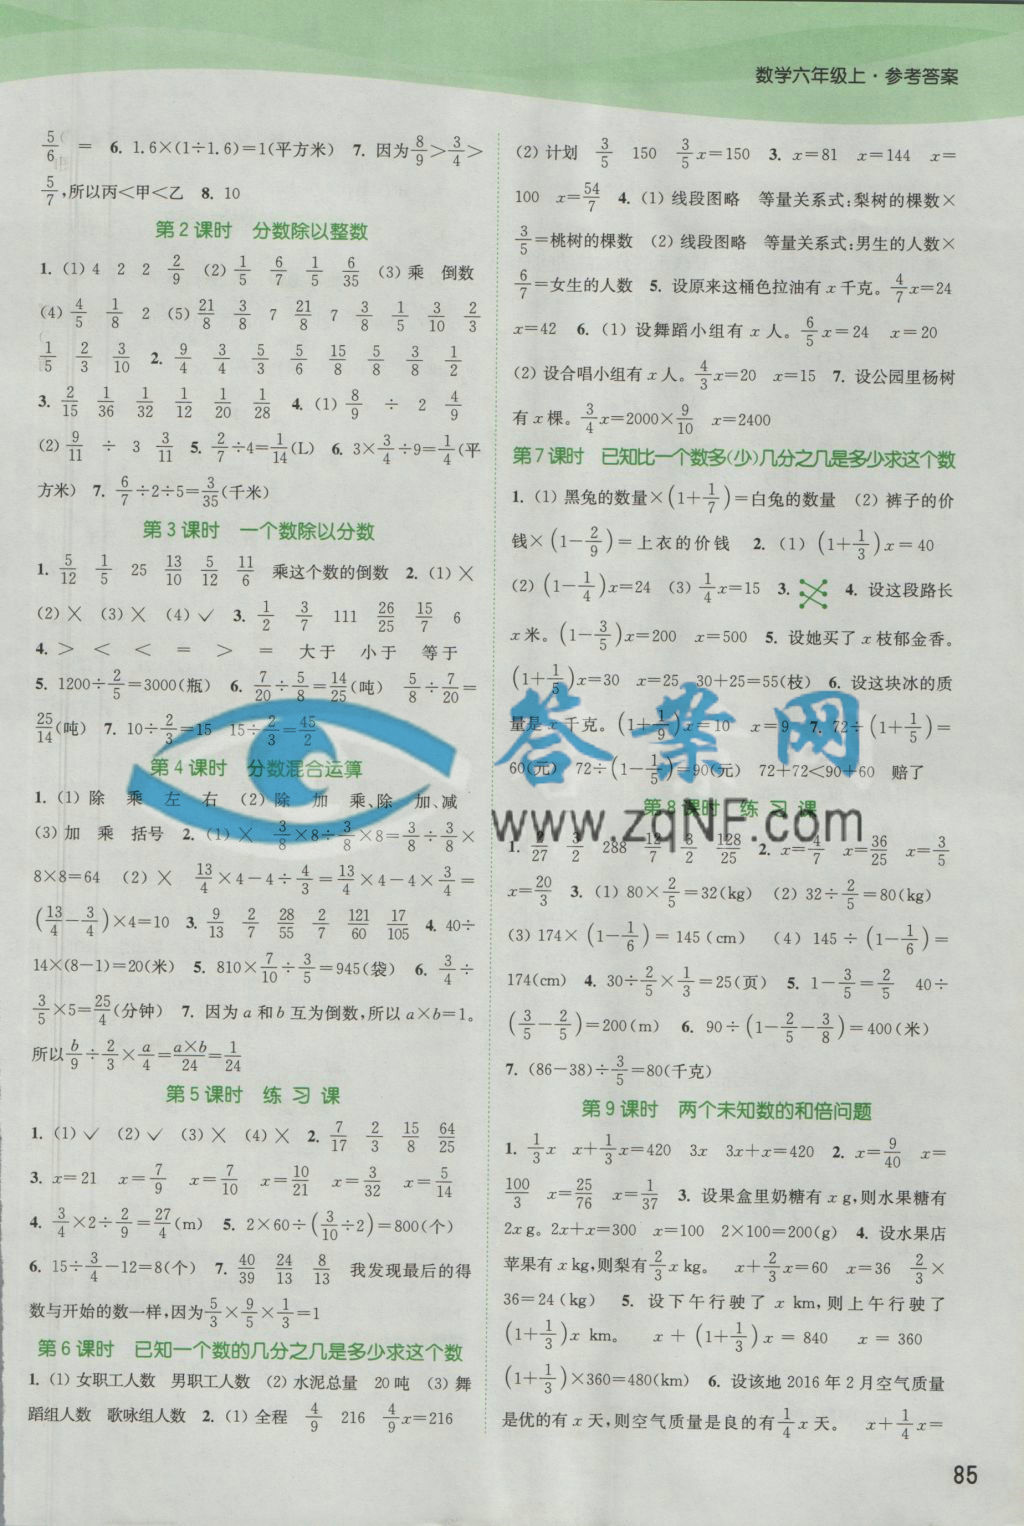 数学六年级上·参考答案
5/6 = 6. 1.6×(1÷1.6)=1(平方米) 7. 因为8/9>3/4>
5/7,所以丙<甲<乙 8. 10
第2课时 分数除以整数
1. (1)4 2 2 2/9 (2)1/5 6/7 1/5 6/35 (3)乘 倒数
(4)4/5 1/8 2 (5)21/8 3/8 7 21/8 7 3/8 1/5 3/10 2/3
1/5 2/3 3/10 2. 9/4 3/4 5/3 5/6 15/8 5/8 3/8 1/2
3. 2/15 1/36 1/32 1/12 1/20 1/28 4. (1)8/9 ÷ 2 4/9
(2)9/11 ÷ 3 3/11 5. 2/7÷4=1/14(L) 6. 3×3/4÷9=1/4(平
方米) 7. 6/7÷2÷5=3/35(千米)
第3课时 一个数除以分数
1. 5/12 1/5 25 13/10 5/12 11/6 乘这个数的倒数 2. (1)×
(2)× (3)× (4)✓ 3. 1/2 3/7 111 26/25 15/7 6
4. > < < = > = 大于 小于 等于
5. 1200÷2/5=3000(瓶) 6. 7/20÷5/8=14/25(吨) 5/8÷7/20=
25/14(吨) 7. 10÷2/3=15 15÷2/3=45/2
第4课时 分数混合运算
1. (1)除 乘 左 右 (2)除 加 乘、除 加、减
(3)加 乘 括号 2. (1)× 3/8×8÷3/8×8=3/8÷3/8×
8×8=64 (2)× 13/4×4-4÷4/3=13/4×4-4×3/4=
(13/4-3/4)×4=10 3. 9/13 2/7 28/55 2/7 121/60 17/105 4. 40÷
14×(8-1)=20(米) 5. 810×7/10÷3/5=945(袋) 6. 3/4÷
3/5×5=25/4(分钟) 7. 因为a和b互为倒数,所以a×b=1。
所以b/9÷2/3×a/4=a×b/24=1/24
第5课时 练习课
1. (1)✓ (2)✓ (3)× (4)× 2. 7/17 2/3 15/8 64/25
3. x=21 x=7/9 x=7/10 x=10/21 x=3/32 x=5/14
4. 3/4×2÷2/9=27/4(m) 5. 2×60÷(3/10÷2)=800(个)
6. 15÷3/4-12=8(个) 7. 40/39 24/13 8/13 我发现最后的得
数与开始的数一样,因为5/3×9/5×1/3=1
第6课时 已知一个数的几分之几是多少求这个数
1. (1)女职工人数 男职工人数 (2)水泥总量 20吨 (3)舞
蹈组人数 歌咏组人数 2. (1)全程 4/9 216 4/9x=216
(2)计划 3/5 150 3/5x=150 3. x=81 x=144 x=
100 x=54/7 4. (1)线段图略 等量关系式:梨树的棵数×
3/5=桃树的棵数 (2)线段图略 等量关系式:男生的人数×
6/7=女生的人数 5. 设原来这桶色拉油有x千克。4/7x=24
x=42 6. (1)设舞蹈小组有x人。6/5x=24 x=20
(2)设合唱小组有x人。4/3x=20 x=15 7. 设公园里杨树
有x棵。3/4x=2000×9/10 x=2400
第7课时 已知比一个数多(少)几分之几是多少求这个数
1. (1)黑兔的数量×(1+1/7)=白兔的数量 (2)裤子的价
钱×(1-2/9)=上衣的价钱 2. (1)(1+1/3)x=40
(2)(1-1/4)x=24 (3)1/4x=15 3. 4. 设这段路长
x米。(1-3/5)x=200 x=500 5. 设她买了x枝郁金香。
(1+1/5)x=30 x=25 30+25=55(枝) 6. 设这块冰的质
量是x千克。(1+1/9)x=10 x=9 7. 72÷(1+1/5)=
60(元) 72÷(1-1/5)=90(元) 72+72<90+60 赔了
第8课时 练习课
1. 2/27 3/2 288 12/7 3/2 128/25 2. x=4/7 x=36/25 x=3/5
x=20/3 3. (1)80×2/5=32(kg) (2)32÷2/5=80(kg)
(3)174×(1-1/6)=145(cm) (4)145÷(1-1/6)=
174(cm) 4. 30÷2/5×1/3=25(页) 5. 1-3/5=2/5 40÷
(3/5-2/5)=200(m) 6. 90÷(1-2/5-3/8)=400(米)
7. (86-38)÷3/5=80(千克)
第9课时 两个未知数的和倍问题
1. 1/3x x+1/3x=420 3x 3x+x=420 2. x=9/40 x=
100/3 x=25/76 x=1/37 3. 设果盒里奶糖有x g,则水果糖有
2x g。2x+x=300 x=100 2×100=200(g) 4. 设水果店
苹果有x kg,则梨有2/3x kg。 x+2/3x=60 x=36 2/3×
36=24(kg) 5. 设下午行驶了x km,则上午行驶了
(1+1/3)x km。 x+(1+1/3)x=840 x=360
(1+1/3)×360=480(km) 6. 设该地2016年2月空气质量
是优的有x天,则空气质量是良的有1/4x天。 x+1/4x=
答案网
www.zqNF.com
85